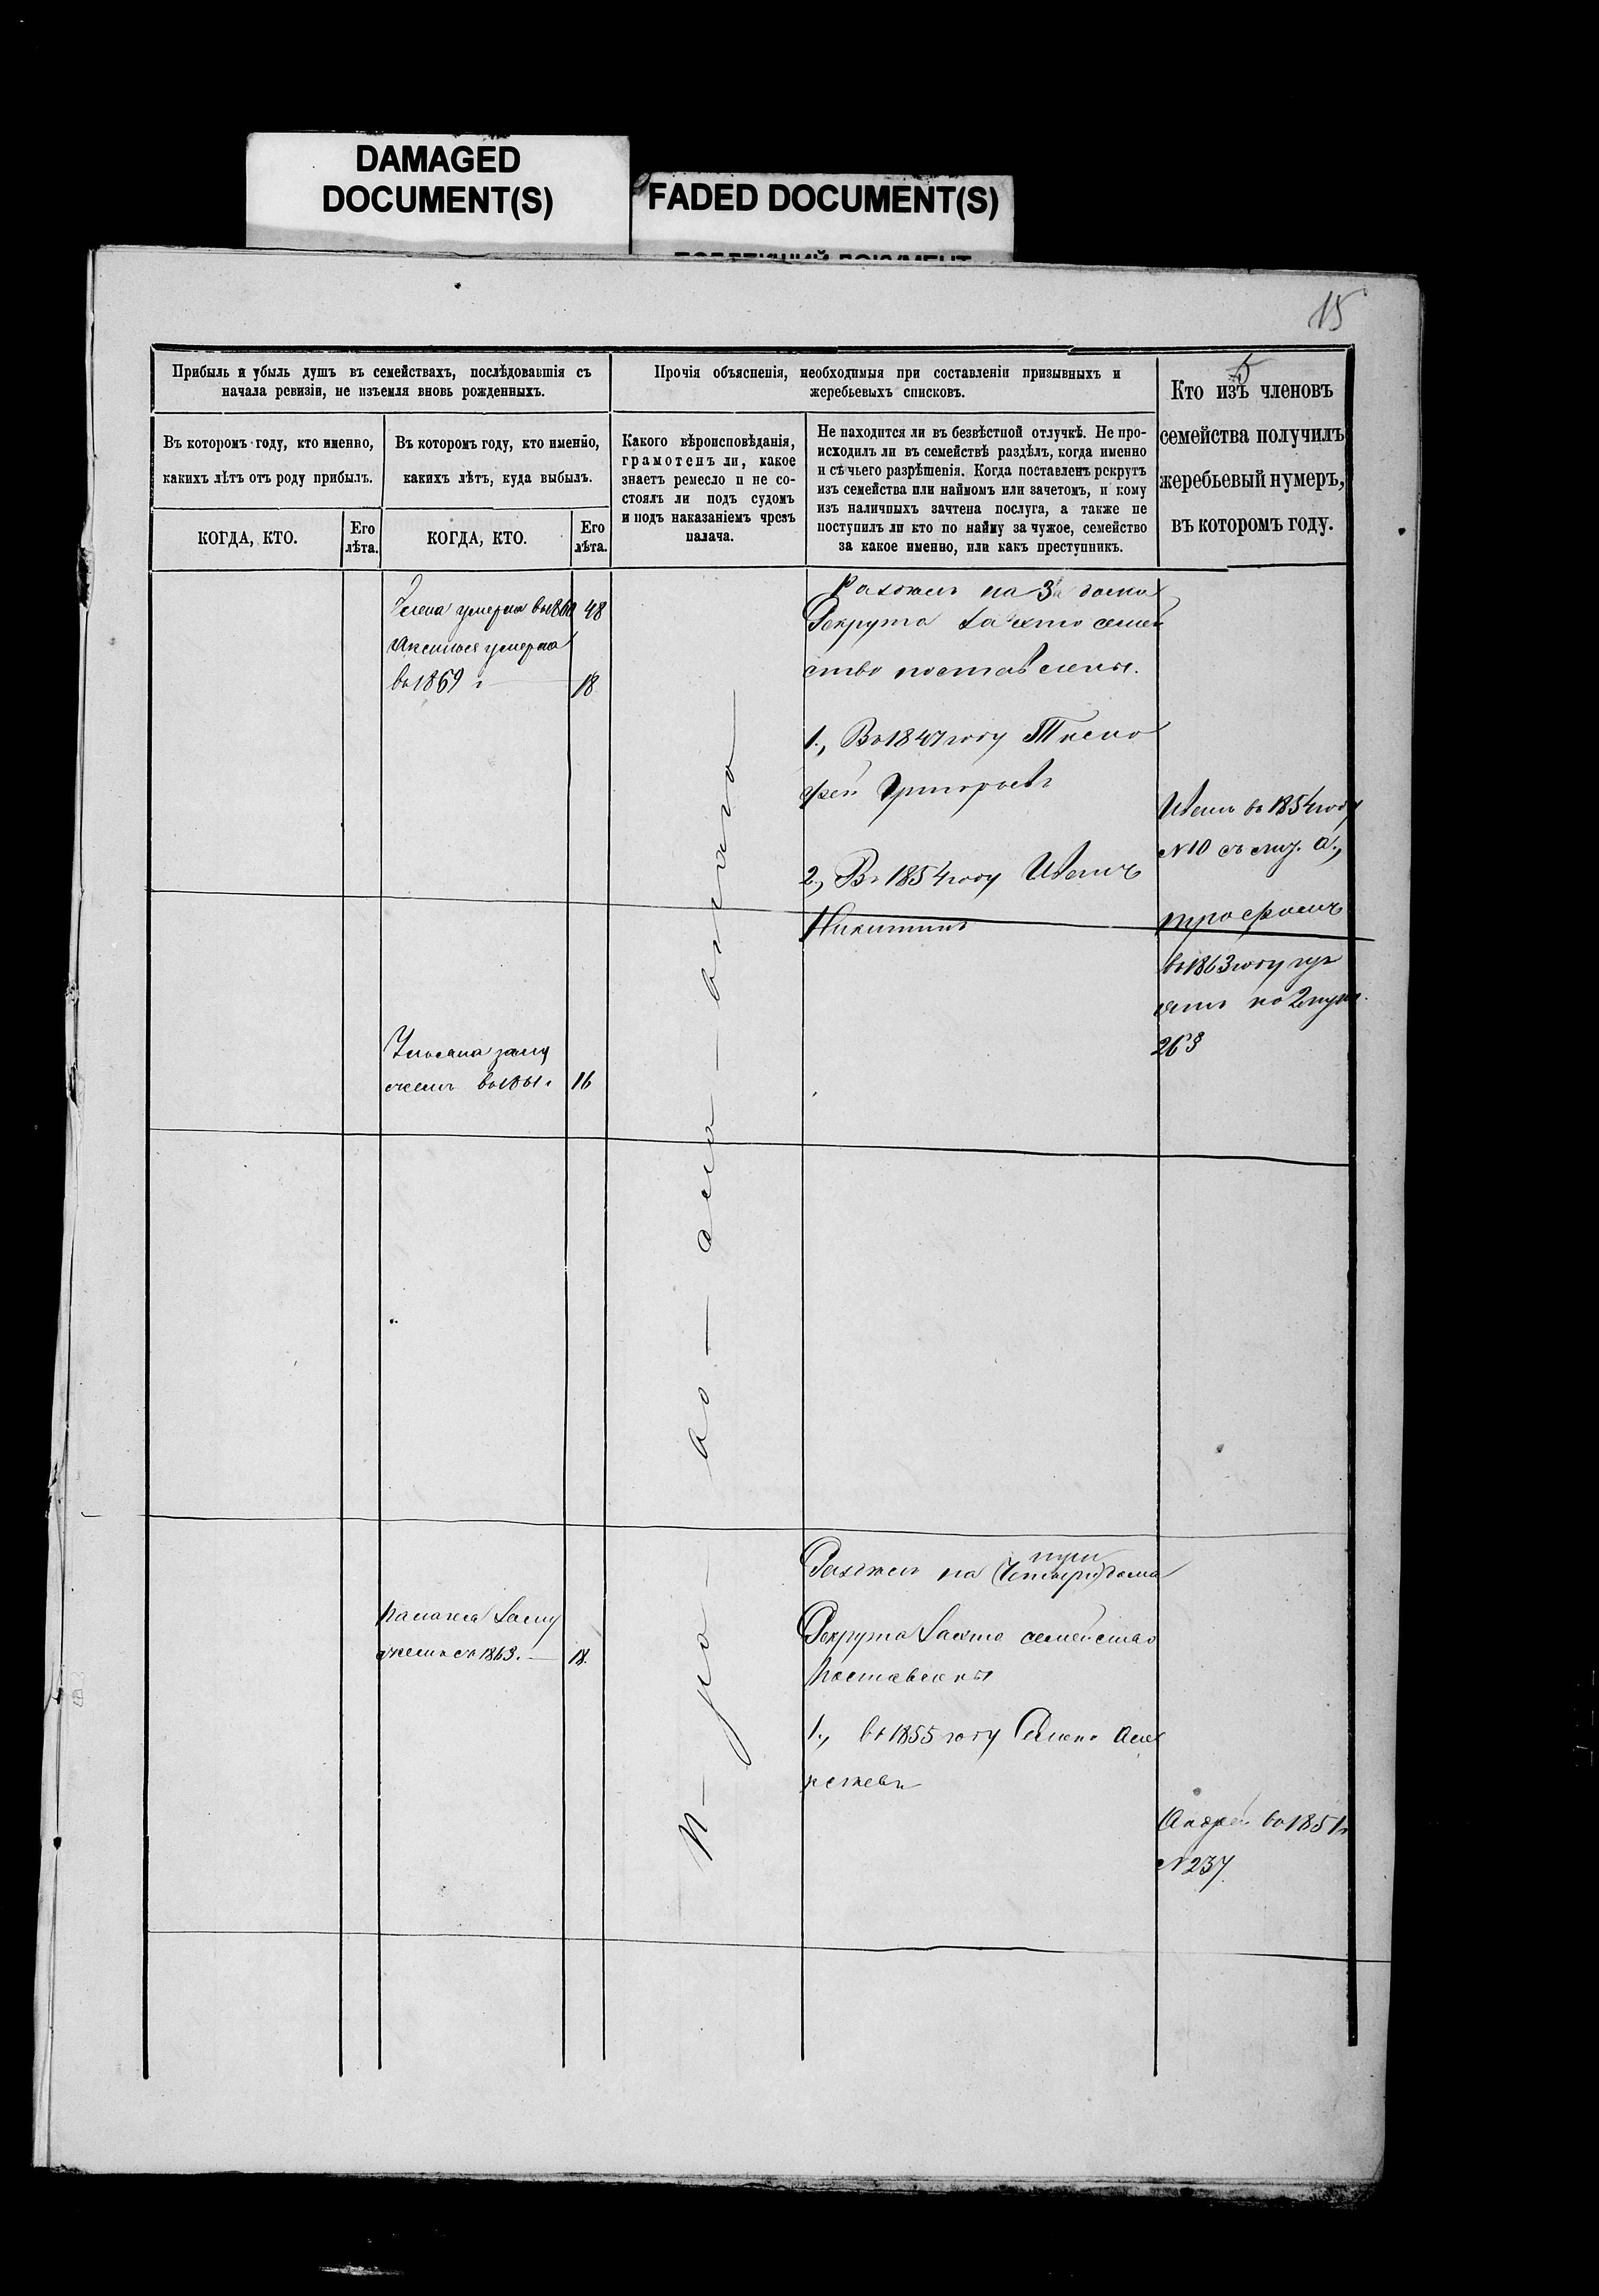 DAMAGED
DOCUMENT(S)
FADED DOCUMENT(S)
15
5
Прибыль и убыль душъ въ семействахъ, послѣдовавшія съ
начала ревизіи, не изъемля вновь рожденныхъ.
Въ которомъ году, кто именно,
какихъ лѣтъ отъ роду прибылъ.
КОГДА, КТО.
Его
лѣта.
Въ которомъ году, кто именно,
какихъ лѣтъ, куда выбылъ.
КОГДА, КТО.
Его
лѣта.
Прочія объясненія, необходимыя при составленіи призывныхъ и
жеребьевыхъ списковъ.
Какого вѣроисповѣданія,
грамотенъ ли, какое
знаетъ ремесло и не со-
стоялъ ли подъ судомъ
и подъ наказаніемъ чрезъ
палача.
Не находится ли въ безвѣстной отлучкѣ. Не про-
исходилъ ли въ семействѣ раздѣлъ, когда именно
и съ чьего разрѣшенія. Когда поставленъ рекрутъ
изъ семейства или наймомъ или зачетомъ, и кому
изъ наличныхъ зачтена послуга, а также не
поступилъ ли кто по найму за чужое, семейство
за какое именно, или какъ преступникъ.
Кто изъ членовъ
семейства получилъ
жеребьевый нумеръ,
въ которомъ году.
умерла 48
умерла
въ 1869 г 18
на 3 дома
Рекрута семей
ство поставлены.
1., Въ 1847 году Тимо
фей Григорьевъ
2, Въ 1854 году Иванъ
Никитинъ
Иванъ въ 1854 году
№10
въ 1863 году
263
Ульяна заму
жемъ въ 1861. 16
на (Четыре) дома
три
Рекрута семейство
поставлены
1., въ 1855 году Але
ксѣевъ
заму
жемъ съ 1863. 18.
Андрей въ 1851 г
№237.
П-ра-во-сла-внаго